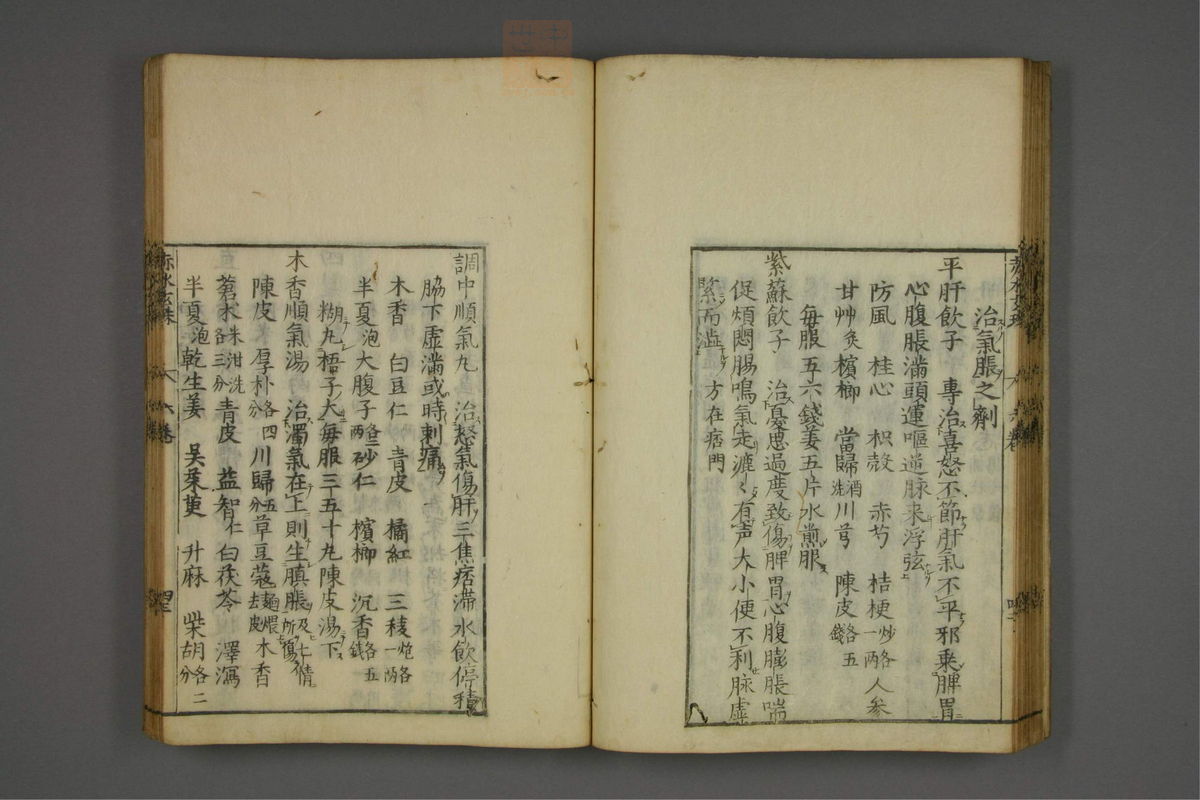 治氣脹之劑
平肝飲子 專治喜怒不節肝氣不平邪乗脾胃
心腹脹滿頭運嘔逆脉来浮弦
防風 桂心 枳殻 赤芍 桔梗炒各一两人参
甘艸炙檳榔 當歸酒洗川芎 陳皮各五錢
毎服五六錢姜五片水煎服
紫蘇飲子 治憂思過度致傷脾胃心腹膨脹喘
促煩悶腸鳴氣走漉々有声大小便不利脉虚
緊而濇 方在痞門
調中順氣丸 治怒氣傷肝三焦痞滞水飲停積
脇下虚滿或時刺痛
木香 白豆仁 青皮 橘紅 三稜炮各一两
半夏泡大腹子各二两砂仁 檳榔 沉香各五錢
糊丸梧子大毎服三五十丸陳皮湯下
木香順氣湯 治濁氣在上則生䐜脹及七情所傷
陳皮 厚朴各四分川歸五分草豆蔻麵煨去皮木香
蒼朮米泔洗各三分青皮 益智仁白茯苓 澤瀉
半夏泡乾生姜 吳茱萸 升麻 柴胡各二分
赤水玄珠 六巻